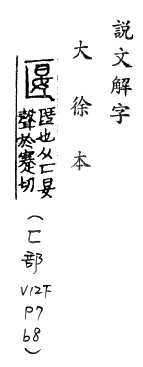 説文解字
大徐本
匽
匿也从匸妟
聲於蹇切
(匸部
V12下
P7
b8)